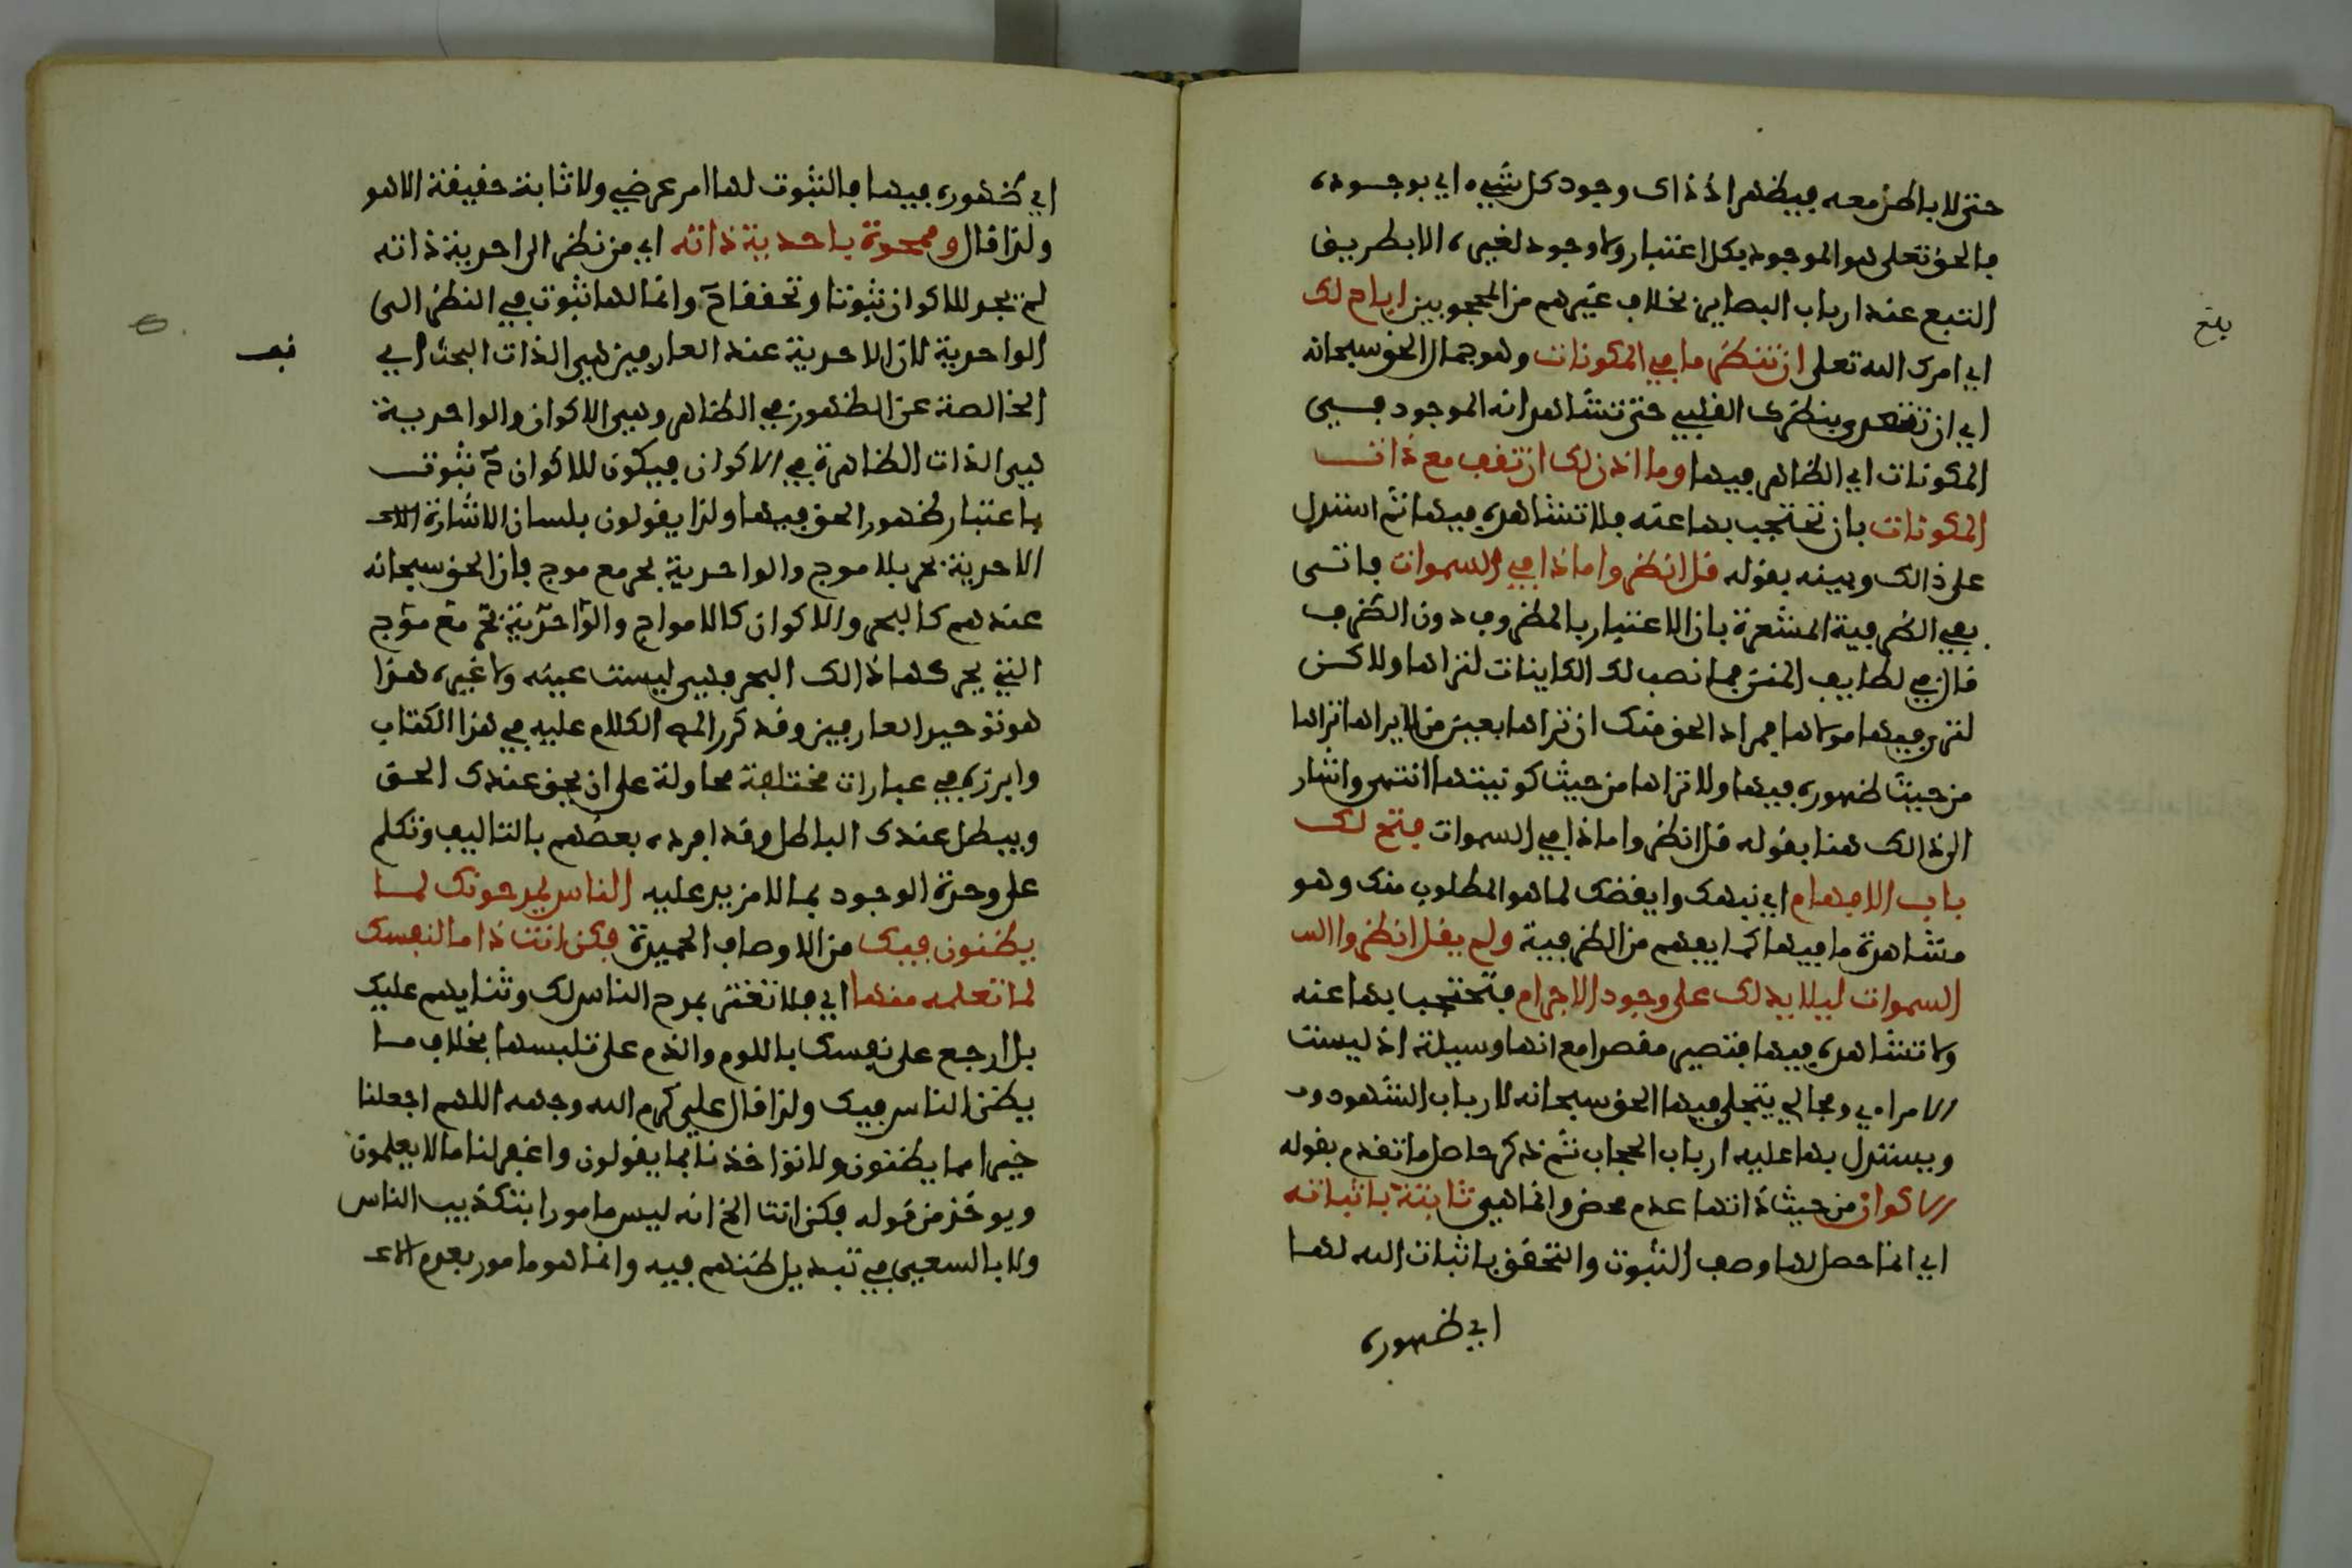 حتى لا باطن معه فيظهر اذ ذاك وجود كل شيء اي بوجوده
فالحق تعلى هو الموجود بكل اعتبار ولا وجود لغيره الا بطريق
التبع عند ارباب البصاير بخلاف غيرهم من المحجوبين اباح لك
بلغ
اي امرك الله تعلى ان تنظر ما في المكونات وهو جمال الحق سبحانه
اي ان تنظر بنظرك القلبي حتى تشاهد انه الموجود في
المكونات اي الظاهر فيها وما اذن لك ان تقف مع ذات
المكونات بان تحتجب بها عنه فلا تشاهده فيها ثم استدل
على ذالك وبينه بقوله قل انظروا ماذا في السموات فاتى
بفي الظرفية المشعرة بان الاعتبار بالمظروف دون الظرف
قال في لطايف المنن فما نصب لك الكاينات لتراها ولاكن
لترى فيها مولاها فمراد الحق منك ان تراها بعين من لا يراها تراها
من حيث ظهوره فيها ولا تراها من حيث كونيتها انتهى واشار
الى ذالك هنا بقوله قل انظروا ماذا في السموات فتح لك
باب الافهام اي نبهك وايقضك لما هو المطلوب منك وهو
مشاهدة ما فيها كما يفهم من الظرفية ولم يقل انظروا الس
السموات ليلا يدلك على وجود الاجرام فتحتجب بها عنه
ولا تشاهده فيها فتصير مقصرا مع انها وسيلة اذ ليست
الا مراءي ومجالي يتجلى فيها الحق سبحانه لارباب الشهود و
ويستدل بها عليه ارباب الحجاب ثم ذكر حاصل ما تقدم بقوله
الاكوان من حيث ذاتها عدم محض وانما هي ثابتة باثباته
اي انما حصل لها وصف الثبوت والتحقق باثبات الله لها
اي ظهوره
اي ظهوره فيها فالثبوت لها امر عرضي ولا ثابت حقيقة الا هو
ولذا قال وممحوة باحدية ذاته اي من نظر الى احدية ذاته
لم يجد للاكوان ثبوتا وتحققا وانما لها ثبوت في النظر الى
الواحدية لان الاحدية عند العارفين هي الذات البحت اي
قف
الخالصة عن الظهور في الظاهر وهي الاكوان والواحدية
هي الذات الظاهرة في الاكوان فيكون للاكوان ثبوت
باعتبار ظهور الحق فيها ولذا يقولون بلسان الاشارة
الاحدية بحر بلا موج والواحدية بحر مع موج فان الحق سبحانه
عندهم كالبحر والاكوان كالامواج والواحدية بحر مع موج
التي يحركها ذالك البحر فهي ليست عينه ولا غيره هذا
هو توحيد العارفين وقد كرر الكلام عليه في هذا الكتاب
وابرزه في عبارات مختلفة محاولة على ان يحق عندك الحق
ويبطل عندك الباطل وقد افرده بعضهم بالتاليف وتكلم
على وحدة الوجود بما لا مزيد عليه الناس يمدحونك لما
يظنون فيك من الاوصاف الحميدة فكن انت ذاما لنفسك
لما تعلمه منها اي فلا تغتر بمدح الناس لك وثنايهم عليك
بل ارجع على نفسك باللوم والذم على تلبسها بخلاف ما
يظن الناس فيك ولذا قال علي كرم الله وجهه اللهم اجعلنا
خيرا مما يظنون ولا تؤاخذنا بما يقولون واغفر لنا ما لا يعلمون
ويوخذ من قوله فكن انت الخ انه ليس مامورا بتكذيب الناس
ولا بالسعي في تبديل ظنهم فيه وانما هو مامور بعدم